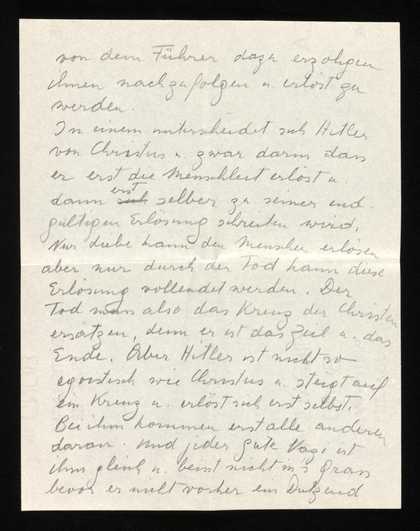 von dem Führer dazu erzohgen
ihnen nachzufolgen u. erlöst zu
werden.
In einem unterscheidet sich Hitler
von Christus u. zwar darin dass
er erst die Menschheit erlöst u.
dann erst selber zu seiner end-
gültigen Erlösung schreiten wird.
Nur Liebe kann den Menschen erlösen
aber nur durch der Tod kann diese
Erlösung vollendet werden. Der
Tod muss also das Kreuz der Christen
ersätzen, denn er ist das Ziel u. das
Ende. Aber Hitler ist nicht so
egoistisch wie Christus u. steigt auf
ein Kreuz u. erlöst sich erst selbst.
Bei ihm kommen erst alle anderen
daran. Und jeder gute Nazi ist
ihm gleich u. beisst nicht in's Gras
bevor er nicht vorher ein Dutzend